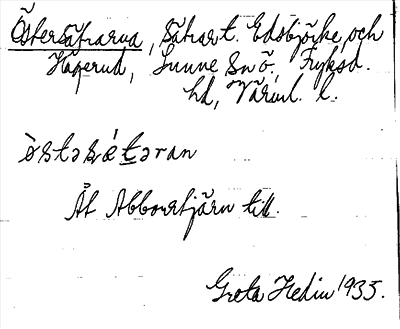 Östersätrarna, Sätrart. Edsbjörke och
Högerud, Sunne Snö. Fryksd.
hd, Värml. l.
östəsǽtəran
Åt Abborrtjärn till.
Greta Hedin 1935.